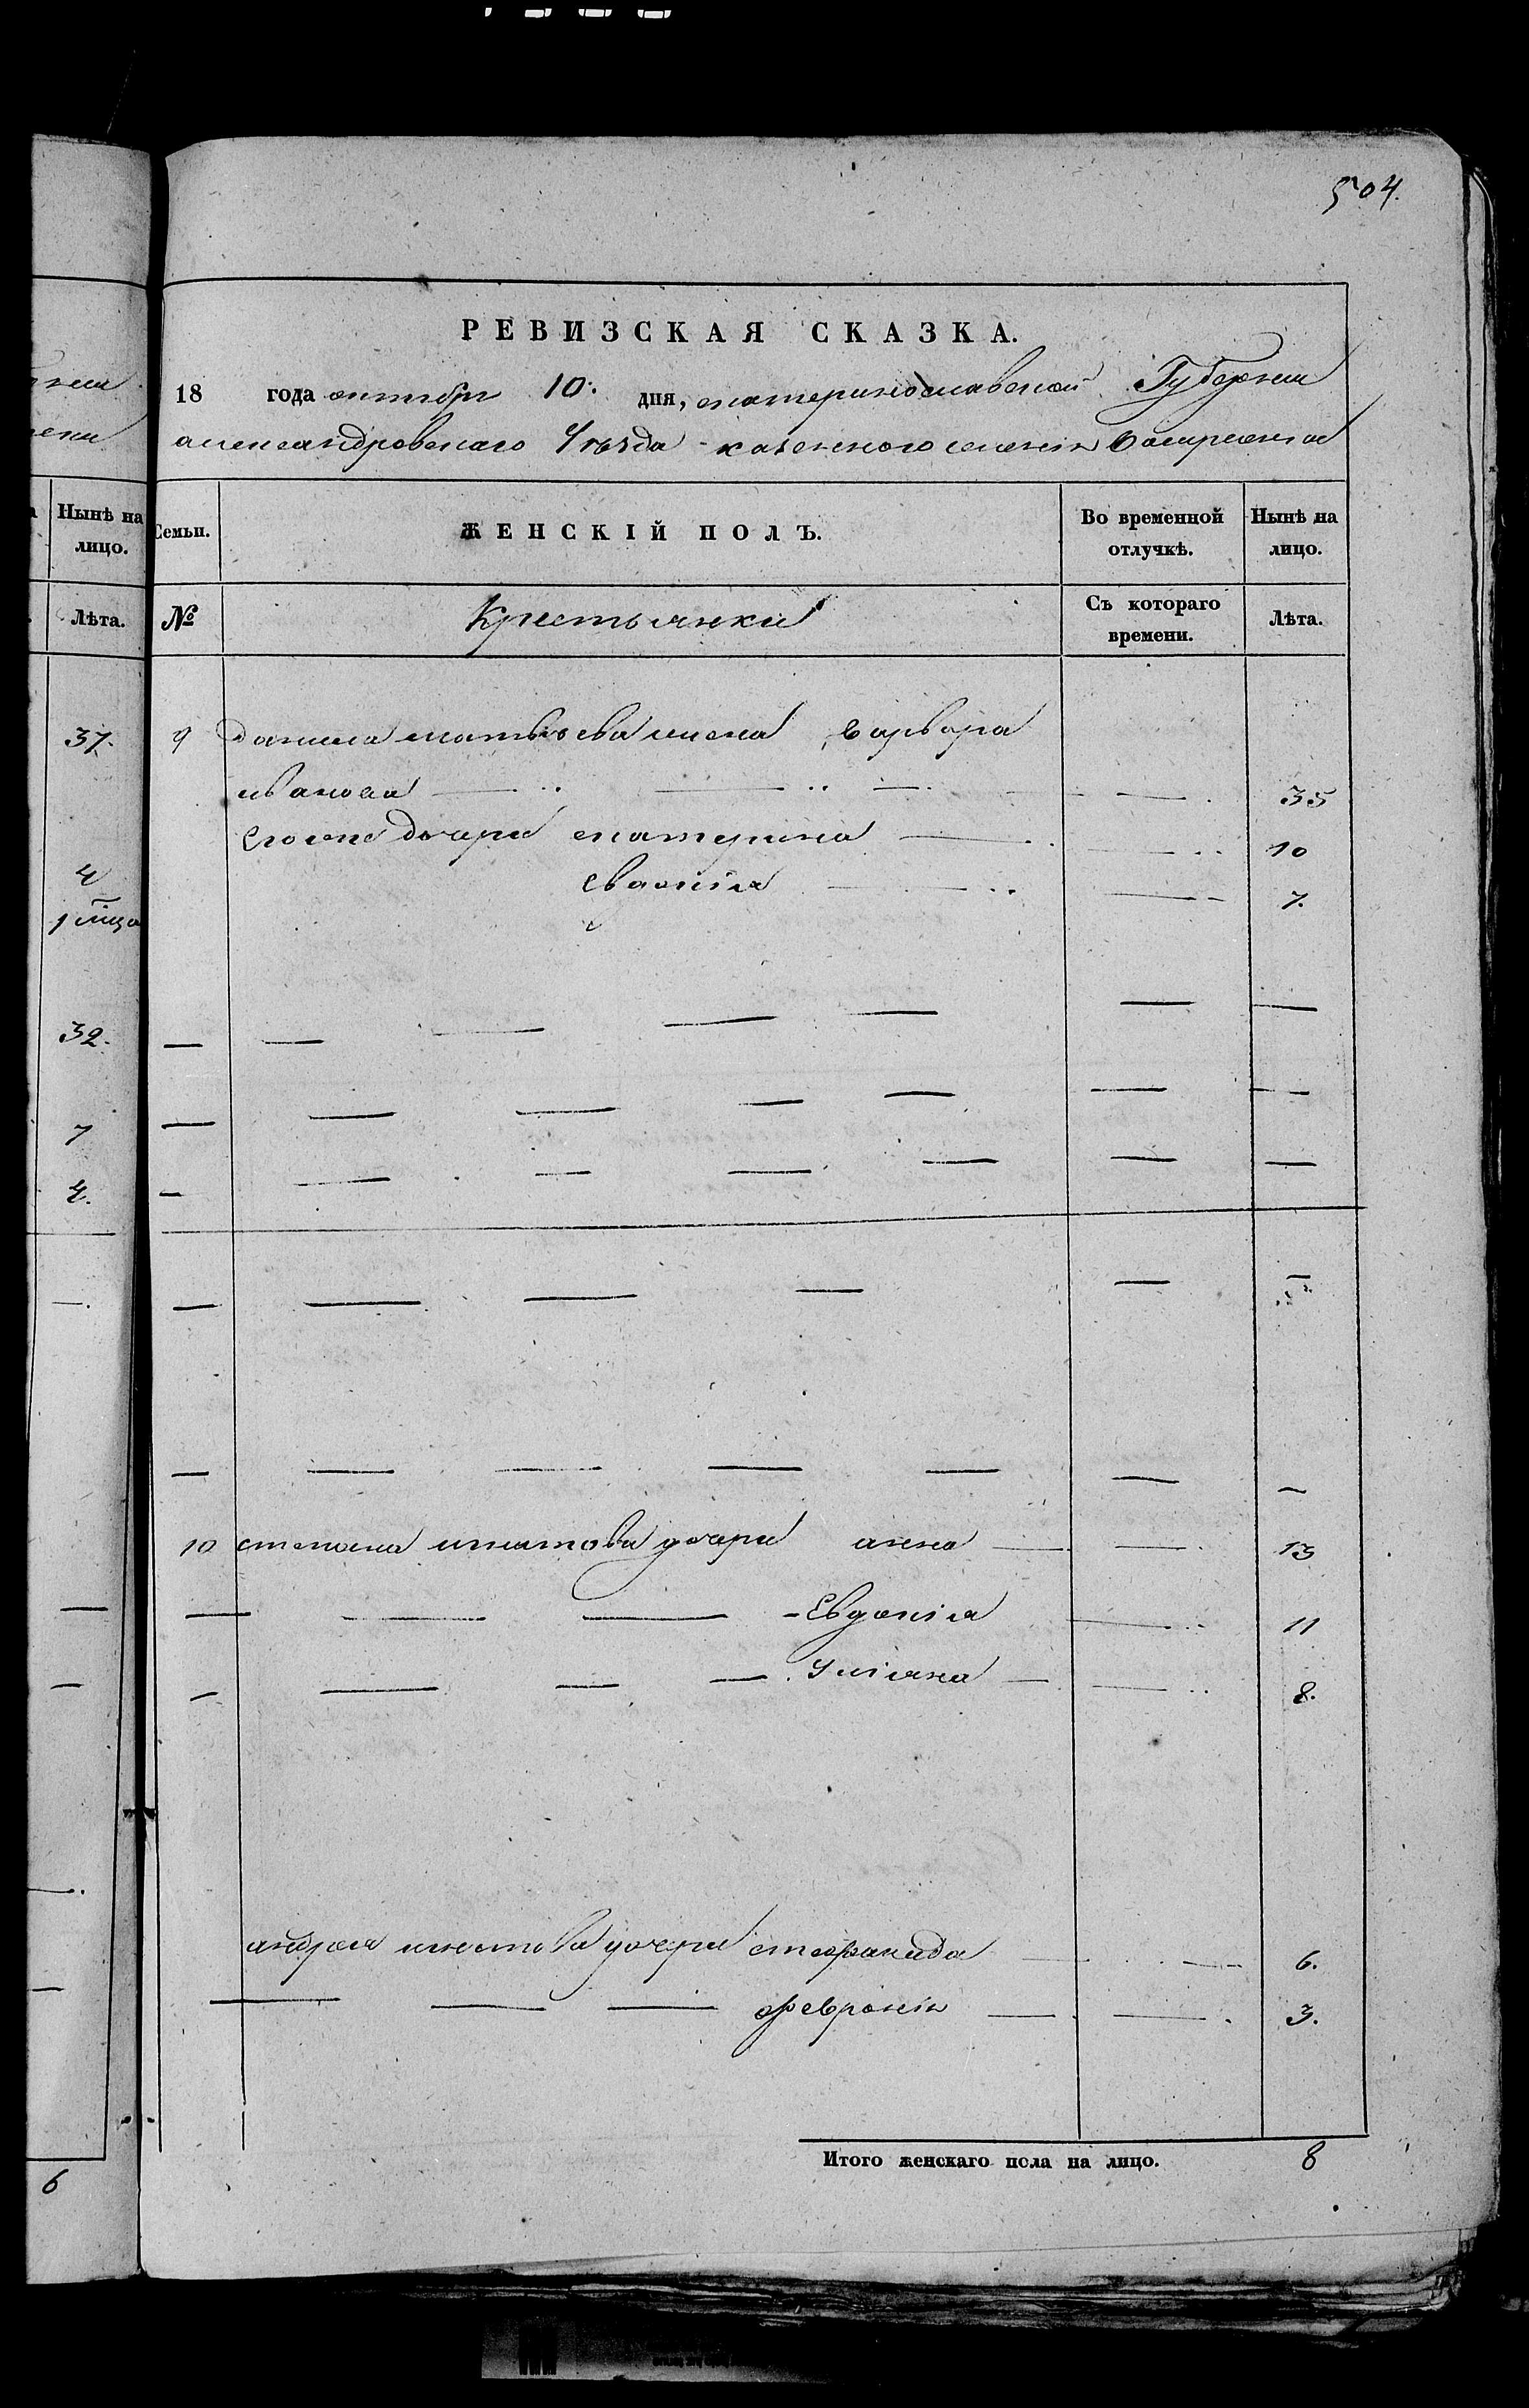 504.
РЕВИЗСКАЯ СКАЗКА.
18 года октября 10: дня, екатеринославской Губернии
александровскаго Уезда казенного селения
Нынѣ на лицо.
Семьи.
ЖЕНСКІЙ ПОЛЪ.
Во временной отлучкѣ.
Нынѣ на лицо.
Лѣта.
№
Крестьянки
Съ котораго времени.
Лѣта.
37. 9 данила матвѣева жена варвара
иванова 35
его же дочери екатерина 10
4
7.
1 мѣсяца
32.
7
4.
10 степана дочери анна 13
Евдокія 11
Уліяна 8.
андрея дочери стефанида 6.
февронія 3.
Итого женскаго пола на лицо. 8
6